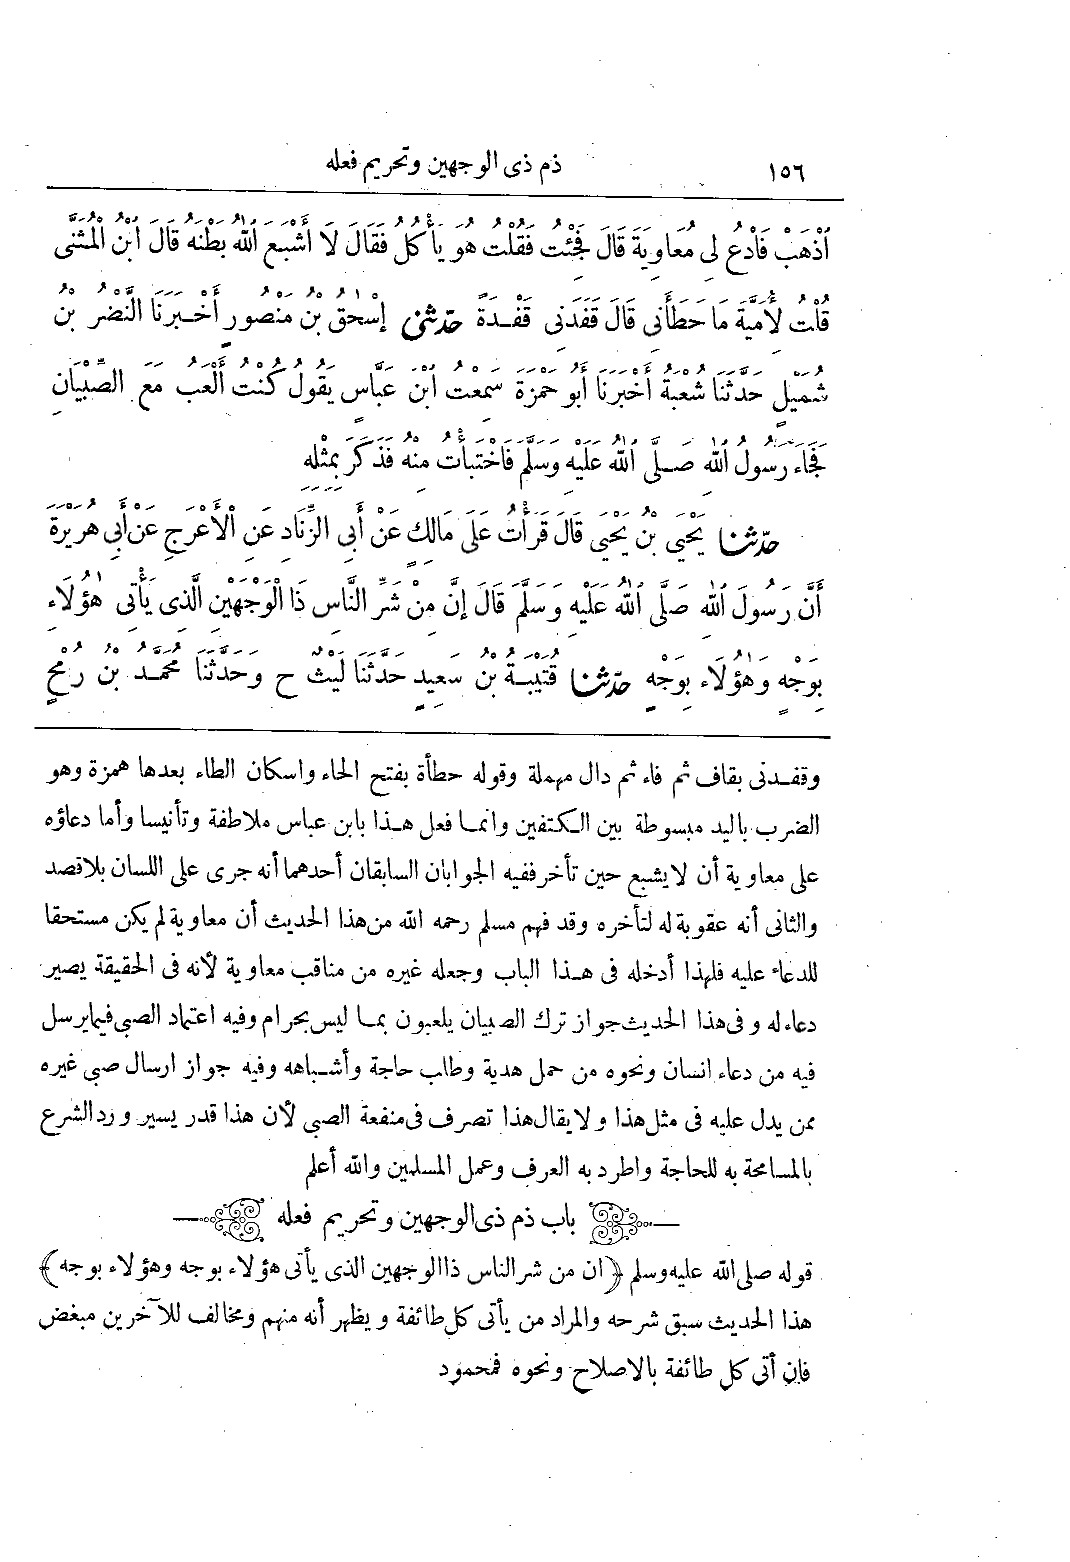 ١٥٦ ذم ذى الوجهين وتحريم فعله
اَذْهَبْ فَادْعُ لِى مُعَاوِيَةَ قَالَ فَجِئْتُ فَقُلْتُ هُوَ يَأْكُلُ فَقَالَ لَا أَشْبَعَ اللهُ بَطْنَهُ قَالَ ابْنُ الْمُثَنَّى
قُلْتُ لِأُمَيَّةَ مَا حَطَأَنِى قَالَ قَفَدَنِى قَفْدَةً حَدَّثَنِى إِسْحٰقُ بْنُ مَنْصُورٍ أَخْبَرَنَا النَّضْرُ بْنُ
شُمَيْلٍ حَدَّثَنَا شُعْبَةُ أَخْبَرَنَا أَبُو حَمْزَةَ سَمِعْتُ ابْنَ عَبَّاسٍ يَقُولُ كُنْتُ أَلْعَبُ مَعَ الصِّبْيَانِ
فَجَاءَ رَسُولُ اللهِ صَلَّى اللهُ عَلَيْهِ وَسَلَّمَ فَاخْتَبَأْتُ مِنْهُ فَذَكَرَ بِمِثْلِهِ
حَدَّثَنَا يَحْيَى بْنُ يَحْيَى قَالَ قَرَأْتُ عَلَى مَالِكٍ عَنْ أَبِى الزِّنَادِ عَنِ الْأَعْرَجِ عَنْ أَبِى هُرَيْرَةَ
أَنَّ رَسُولَ اللهِ صَلَّى اللهُ عَلَيْهِ وَسَلَّمَ قَالَ إِنَّ مِنْ شَرِّ النَّاسِ ذَا الْوَجْهَيْنِ الَّذِى يَأْتِى هٰؤُلَاءِ
بِوَجْهٍ وَهٰؤُلَاءِ بِوَجْهٍ حَدَّثَنَا قُتَيْبَةُ بْنُ سَعِيدٍ حَدَّثَنَا لَيْثٌ ح وَحَدَّثَنَا مُحَمَّدُ بْنُ رُمْحٍ
وقفدنى بقاف ثم فاء ثم دال مهملة وقوله حطأة بفتح الحاء واسكان الطاء بعدها همزة وهو
الضرب باليد مبسوطة بين الكتفين وانما فعل هذا بابن عباس ملاطفة وتأنيسا وأما دعاؤه
على معاوية أن لايشبع حين تأخر ففيه الجوابان السابقان أحدهما أنه جرى على اللسان بلاقصد
والثانى أنه عقوبة له لتأخره وقد فهم مسلم رحمه الله من هذا الحديث أن معاوية لم يكن مستحقا
للدعاء عليه فلهذا أدخله فى هذا الباب وجعله غيره من مناقب معاوية لأنه فى الحقيقة يصير
دعاء له وفى هذا الحديث جواز ترك الصبيان يلعبون بما ليس بحرام وفيه اعتماد الصبى فيما يرسل
فيه من دعاء انسان ونحوه من حمل هدية وطلب حاجة وأشباهه وفيه جواز ارسال صبى غيره
ممن يدل عليه فى مثل هذا ولا يقال هذا تصرف فى منفعة الصبى لأن هذا قدر يسير ورد الشرع
بالمسامحة به للحاجة واطرد به العرف وعمل المسلمين والله أعلم
باب ذم ذى الوجهين وتحريم فعله
قوله صلى الله عليه وسلم ﴿ان من شر الناس ذا الوجهين الذى يأتى هؤلاء بوجه وهؤلاء بوجه﴾
هذا الحديث سبق شرحه والمراد من يأتى كل طائفة ويظهر أنه منهم ومخالف للآخرين مبغض
فان أتى كل طائفة بالاصلاح ونحوه فمحمود